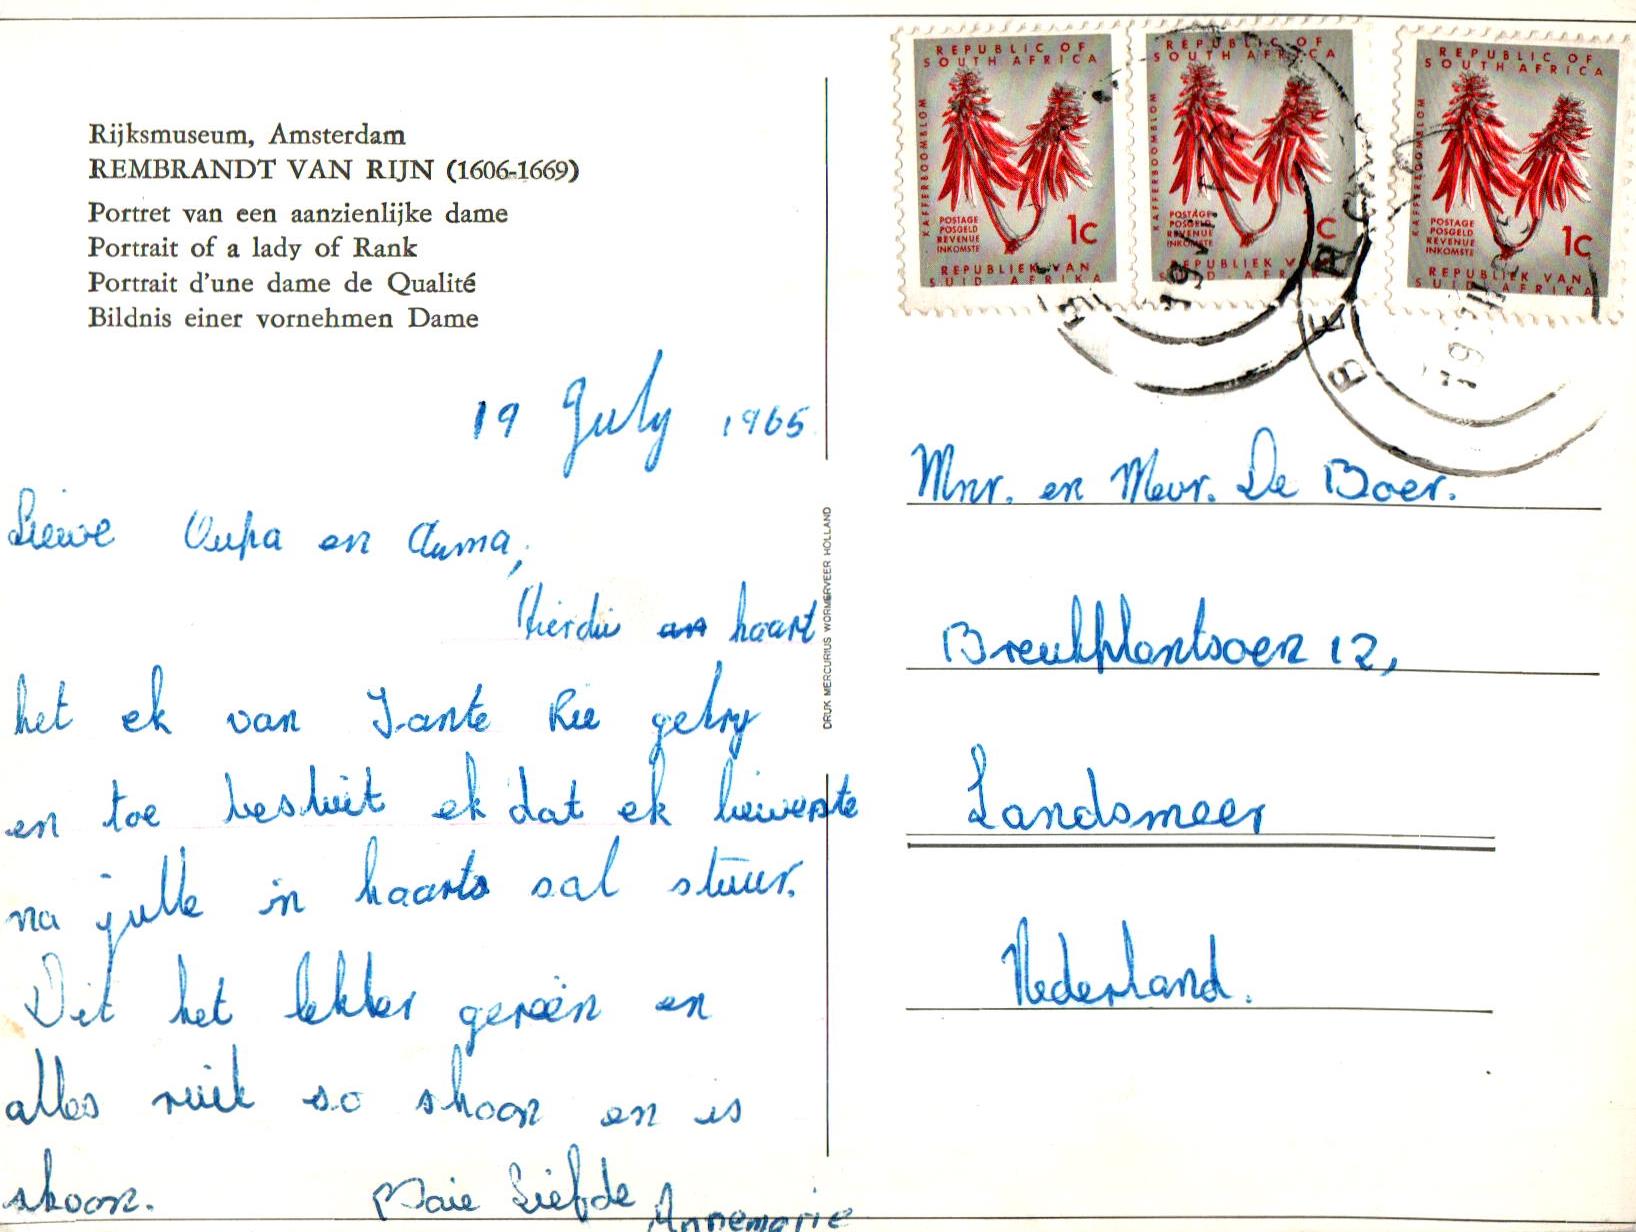 Rijksmuseum, Amsterdam
REMBRANDT VAN RIJN (1606-1669)
Portret van een aanzienlijke dame
Portrait of a lady of Rank
Portrait d'une dame de Qualité
Bildnis einer vornehmen Dame
19 July 1965
Liewe Oupa en Ouma,
Hierdie an kaart
het ek van Tante Rie gekry
en toe besluit ek dat ek liewerste
na julle in kaarts sal stuur.
Dit het lekker gereën en
alles ruik so skoon en is
skoon. Baie Liefde
Annemarie
DRUK MERCURIUS WORMERVEER HOLLAND
REPUBLIC OF
SOUTH AFRICA
KAFFERBOOMBLOM
POSTAGE
POSGELD
REVENUE
INKOMSTE
1c
REPUBLIEK VAN
SUID AFRIKA
REPUBLIC OF
SOUTH AFRICA
KAFFERBOOMBLOM
POSTAGE
POSGELD
REVENUE
INKOMSTE
1c
REPUBLIEK VAN
SUID AFRIKA
REPUBLIC OF
SOUTH AFRICA
KAFFERBOOMBLOM
POSTAGE
POSGELD
REVENUE
INKOMSTE
1c
REPUBLIEK VAN
SUID AFRIKA
Mnr. en Mevr. De Boer.
Breekplantsoen 12,
Landsmeer
Nederland.